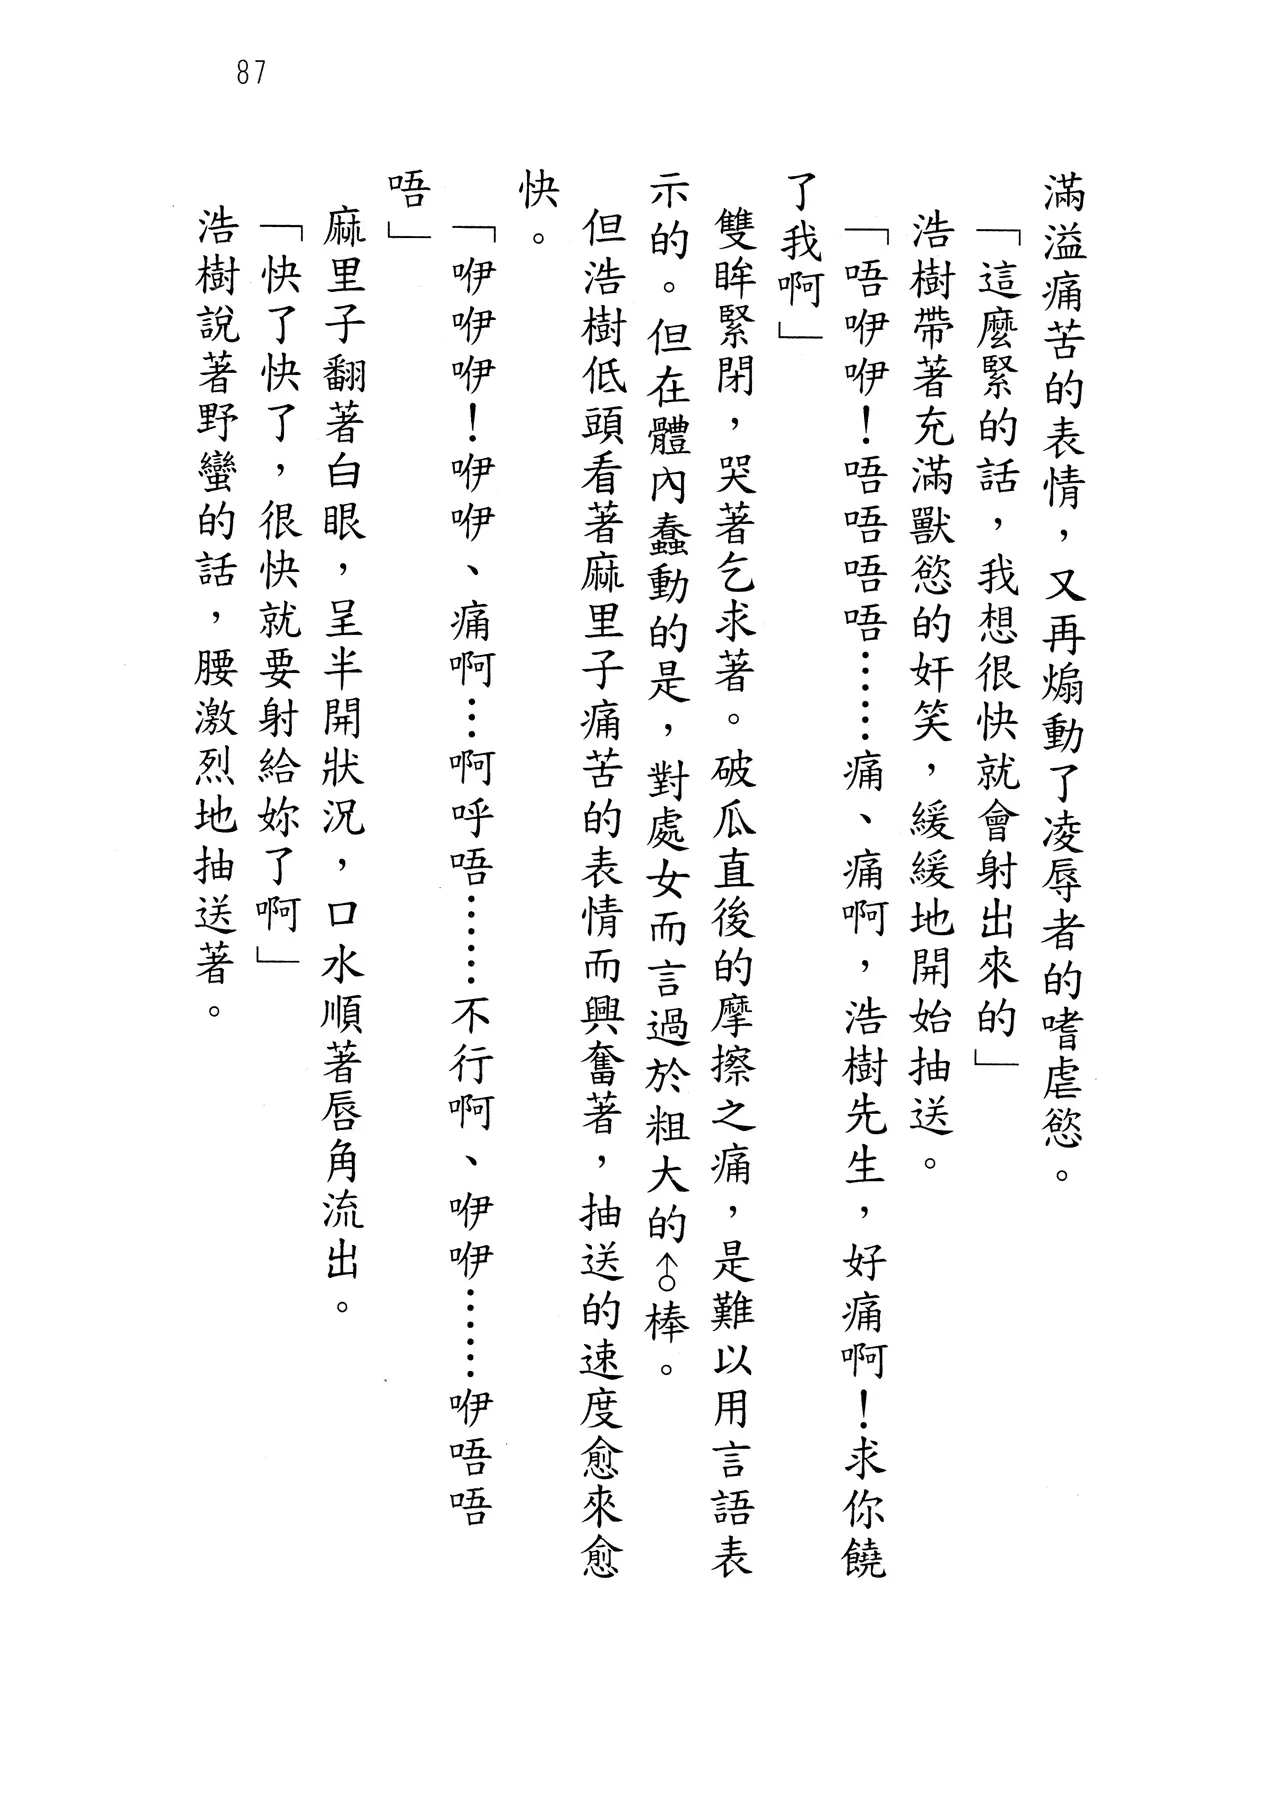 87
滿溢痛苦的表情，又再煽動了凌辱者的嗜虐慾。
「這麼緊的話，我想很快就會射出來的」
浩樹帶著充滿獸慾的奸笑，緩緩地開始抽送。
「唔咿咿！唔唔唔唔……痛、痛啊，浩樹先生，好痛啊！求你饒
了我啊」
雙眸緊閉，哭著乞求著。破瓜直後的摩擦之痛，是難以用言語表
示的。但在體內蠢動的是，對處女而言過於粗大的♂棒。
但浩樹低頭看著麻里子痛苦的表情而興奮著，抽送的速度愈來愈
快。
「咿咿咿！咿咿、痛啊…啊呼唔……不行啊、咿咿……咿唔唔
唔」
麻里子翻著白眼，呈半開狀況，口水順著唇角流出。
「快了快了，很快就要射給妳了啊」
浩樹說著野蠻的話，腰激烈地抽送著。